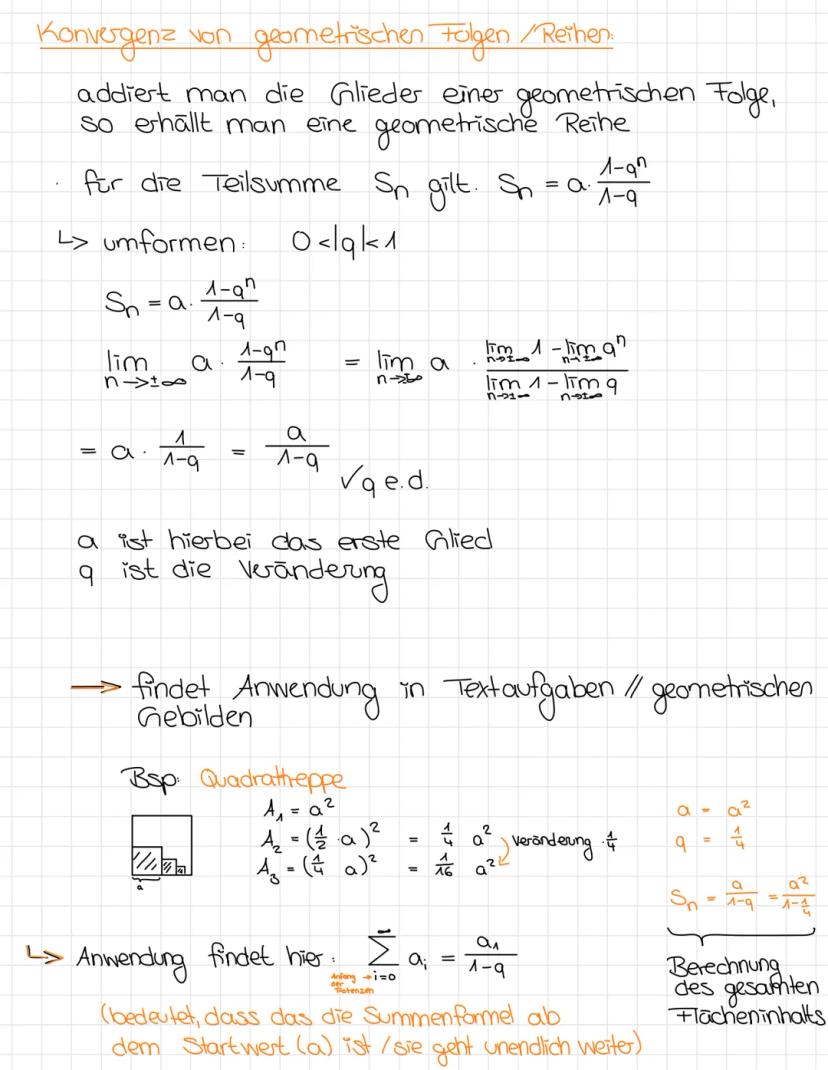 Konvergenz von geometrischen Folgen / Reihen:
addiert man die Glieder einer geometrischen Folge,
so erhällt man eine geometrische Reihe
· für die Teilsumme Sn gilt. Sn = a · (1-qⁿ)/(1-q)
↳ umformen: 0<|q|<1
Sn = a · (1-qⁿ)/(1-q)
lim n→±∞ a · (1-qⁿ)/(1-q) = lim n→±∞ a · (lim n→±∞ 1 - lim n→±∞ qⁿ)/(lim n→±∞ 1 - lim n→±∞ q)
= a · 1/(1-q) = a/(1-q)
✓ q e.d.
a ist hierbei das erste Glied
q ist die Veränderung
→ findet Anwendung in Textaufgaben // geometrischen
Gebilden
Bsp: Quadrattreppe
A₁ = a²
A₂ = (1/2 · a)² = 1/4 a²
A₃ = (1/4 a)² = 1/16 a²
Veränderung · 1/4
a
a = a²
q = 1/4
Sn = a/(1-q) = a²/(1-1/4)
Berechnung
des gesamten
Flächeninhalts
↳ Anwendung findet hier: ∞ Σ i=0 aᵢ = a₁/(1-q)
Anfang →
der
Potenzen
(bedeutet, dass das die Summenformel ab
dem Startwert (a) ist / sie geht unendlich weiter)